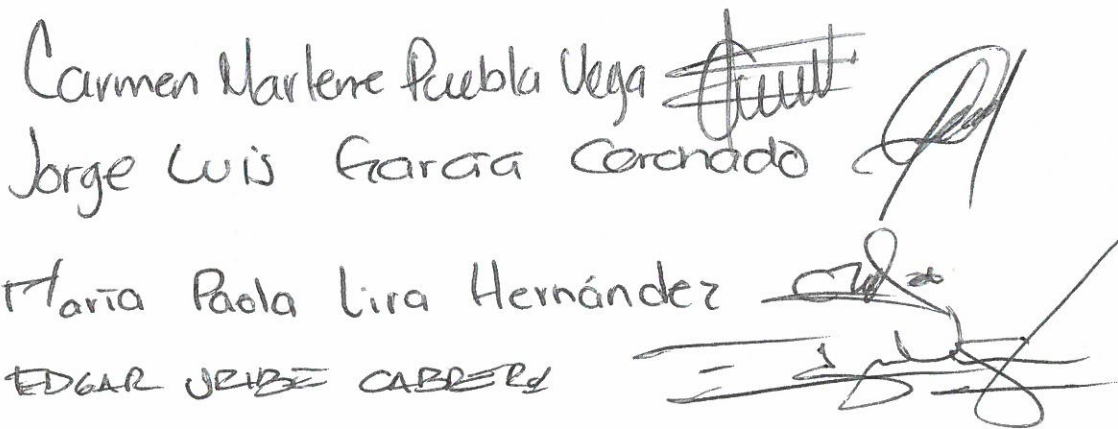 Carmen Marlene Puebla Vega
Jorge Luis García Coronado
María Paola Lira Hernández
EDGAR URIBE CABRERA